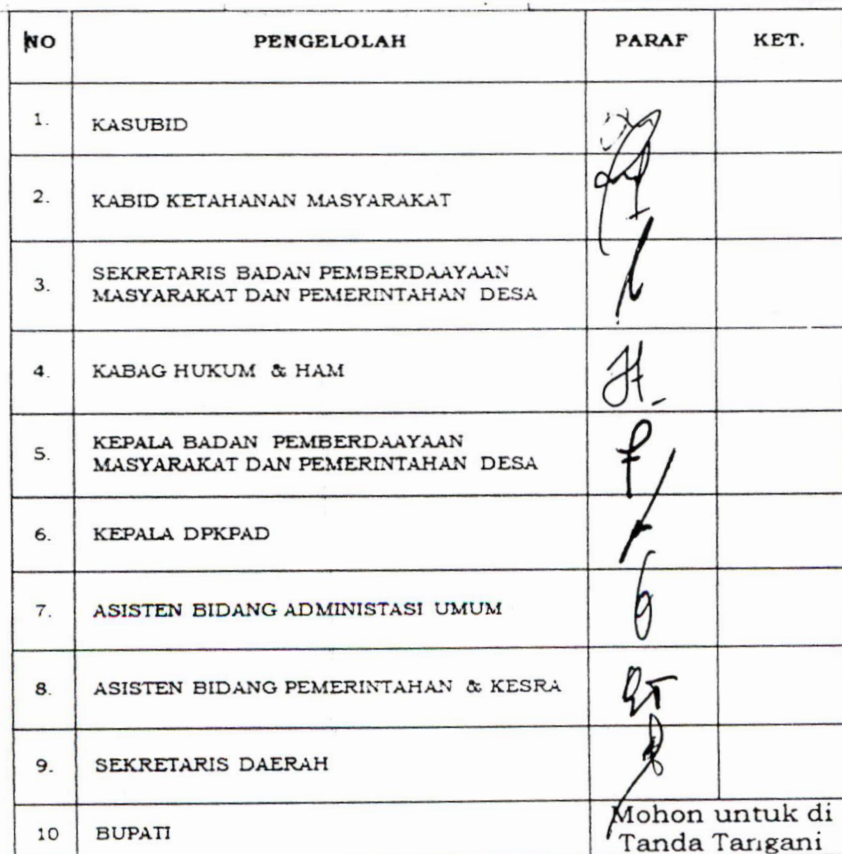 NO PENGELOLAH PARAF KET.
1. KASUBID
2. KABID KETAHANAN MASYARAKAT
3. SEKRETARIS BADAN PEMBERDAAYAAN
MASYARAKAT DAN PEMERINTAHAN DESA
4. KABAG HUKUM & HAM
5. KEPALA BADAN PEMBERDAAYAAN
MASYARAKAT DAN PEMERINTAHAN DESA
6. KEPALA DPKPAD
7. ASISTEN BIDANG ADMINISTASI UMUM
8. ASISTEN BIDANG PEMERINTAHAN & KESRA
9. SEKRETARIS DAERAH
10 BUPATI Mohon untuk di
Tanda Tangani